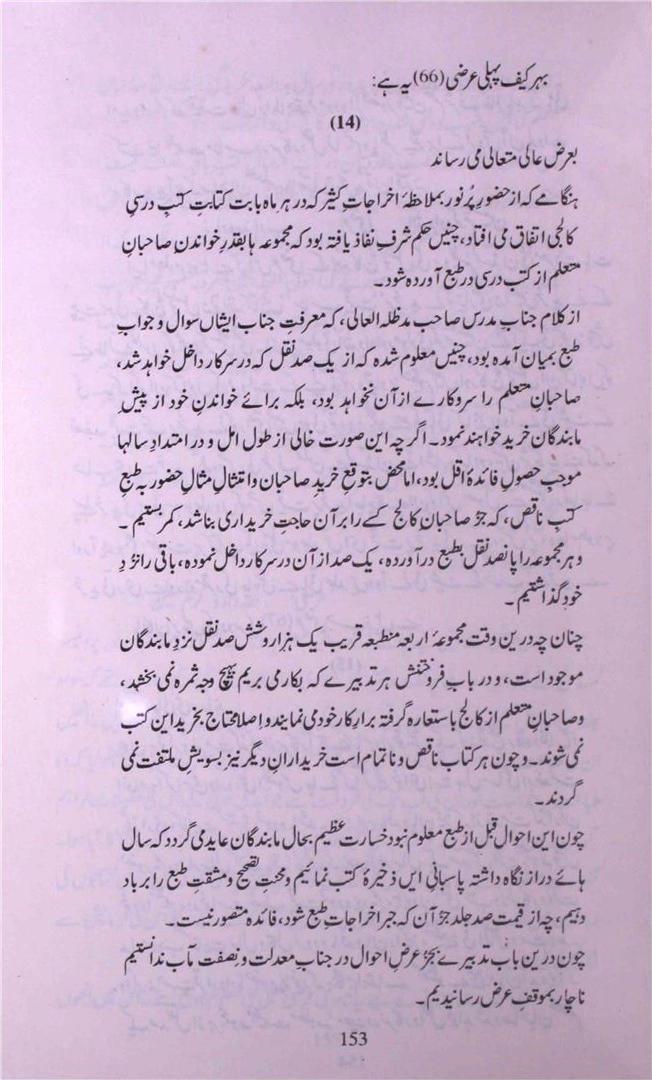 بہر کیف پہلی عرضی (66) یہ ہے:
(14)
بعرض عالی متعالی می رساند
ہنگامے کہ از حضورِ پُر نور بملاحظۂ اخراجاتِ کثیر کہ در ہر ماہ بابت کتابتِ کتبِ درسیِ
کالجی اتفاق می افتاد، چنیں حکم شرفِ نفاذ یافتہ بود کہ مجموعہ ہا بقدرِ خواندنِ صاحبانِ
متعلم از کتب درسی در طبع آوردہ شود۔
از کلام جنابِ مدرس صاحب مدظلہ العالی، کہ معرفتِ جناب ایشاں سوال و جوابِ
طبع بمیان آمدہ بود، چنیں معلوم شدہ کہ از یک صد نقل کہ در سرکار داخل خواہد شد،
صاحبانِ متعلم را سروکارے از آن نخواہد بود، بلکہ برائے خواندنِ خود از پیشِ
مابندگان خرید خواہند نمود۔ اگرچہ این صورت خالی از طول امل و در امتدادِ سالہا
موجبِ حصولِ فائدۂ اقل بود، اما محض بتوقعِ خریدِ صاحبان وامتثالِ مثالِ حضور بہ طبعِ
کتبِ ناقص، کہ جز صاحبان کالج کسے را بر آن حاجت خریداری بناشد، کمر بستیم۔
و ہر مجموعہ را پانصد نقل بطبع در آوردہ، یک صد از آن در سرکار داخل نمودہ، باقی را نزدِ
خود گذاشتیم۔
چنان چہ درین وقت مجموعۂ اربعہ منطبعہ قریب یک ہزار و شش صد نقل نزدِ مابندگان
موجود است، و در بابِ فروختنش ہر تدبیرے کہ بکار می بریم بہیچ وجہ ثمرہ نمی بخشد،
و صاحبانِ متعلم از کالج باستعارہ گرفتہ برارِ کار خود می نمایند و اصلا محتاج بخریدِ این کتب
نمی شوند۔ و چون ہر کتاب ناقص و ناتمام است خریدارانِ دیگر نیز بسویش ملتفت نمی
گردند۔
چون این احوال قبل از طبع معلوم نبود خسارت عظیم بحال مابندگان عاید می گردد کہ سال
ہائے دراز نگاہ داشتہ پاسبانیِ ایں ذخیرۂ کتب نمائیم و محنتِ تصحیح و مشقتِ طبع را برباد
دہیم، چہ از قیمت صد جلد جز آن کہ جبرِ اخراجاتِ طبع شود، فائدہ متصور نیست۔
چون درین باب تدبیرے بجز عرضِ احوال در جنابِ معدلت و نصفت مآب ندانستیم
ناچار بموقفِ عرض رسانیدیم۔
153